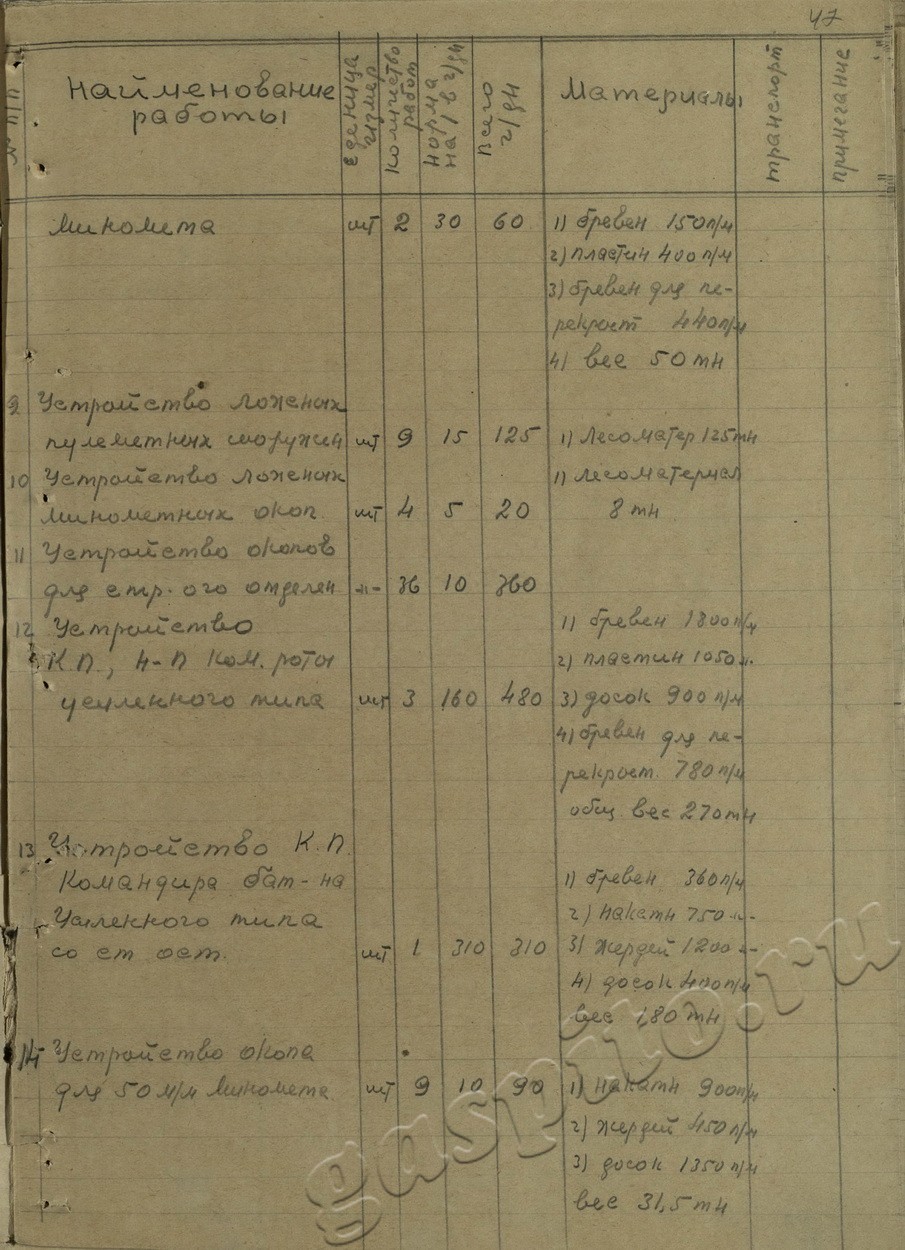 47
№ п/п
Найменование
работы
Еденица
измер
Количество
работ
Норма
на 1 в ч/дн
Всего
ч/дн
Материалы
транспорт
примегание
миномета шт 2 30 60 1) бревен 150 п/м
2) пластин 400 п/м
3) бревен для пе-
рекрыт 440 п/м
4) вес 50 тн
9 Устройство ложеных
пулеметных сооружен шт 9 15 125 1) Лесоматер 125 тн
10 Устройство ложеных 1) лесоматериал
минометных окоп. шт 4 5 20 8 тн
11 Устройство окопов
для стр-ого отделен -"- 36 10 360
12 Устройство 1) бревен 1800 п/м
К.П., Н-П ком. роты 2) пластин 1050 -"-
усиленного типа шт 3 160 480 3) досок 900 п/м
4) бревен для пе-
рекрыт. 780 п/м
общ. вес 270 тн
13 Устройство К.П.
Командира бат-на 1) бревен 360 п/м
Усиленного типа 2) накатн 750 -"-
со ст ост. шт 1 310 310 3) жердей 1200 -"-
4) досок 400 п/м
вес 1,80 тн
14 Устройство окопа
для 50 м/м миномета шт 9 10 90 1) накатн 900 п/м
2) жердей 450 п/м
3) досок 1350 п/м
вес 31,5 тн
gaspito.ru